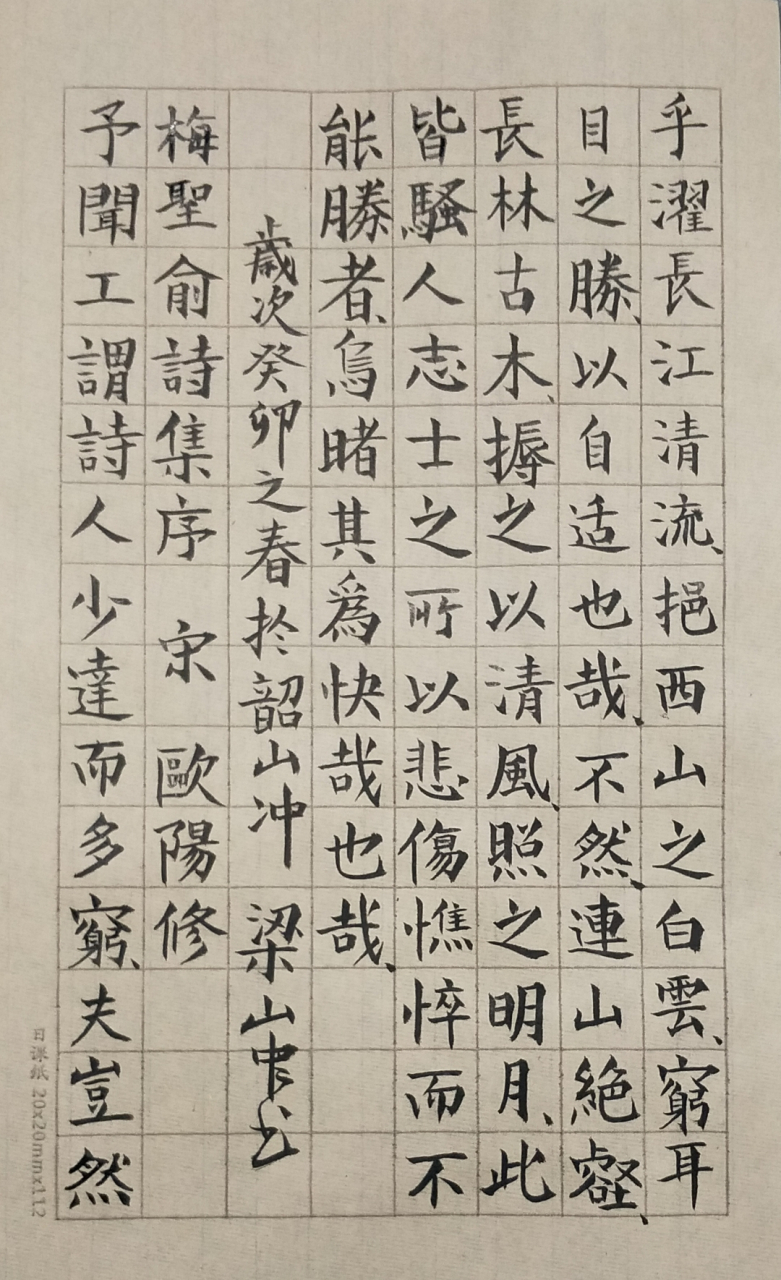 乎濯長江清流、挹西山之白雲、窮耳
目之勝、以自适也哉、不然、連山絶壑、
長林古木、搙之以清風、照之明月、此
皆騷人志士之所以悲傷憔悴而不
能勝者、烏睹其爲快哉也哉、
歲次癸卯之春於韶山冲 梁山中書
梅聖俞詩集序 宋 歐陽修
予聞工謂詩人少達而多窮、夫豈然
日课纸 20x20mmx112